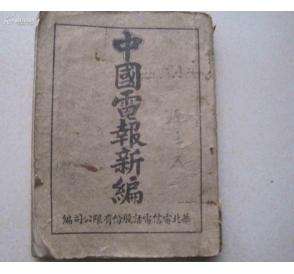 中國電報新編
華北電信電話股份有限公司編